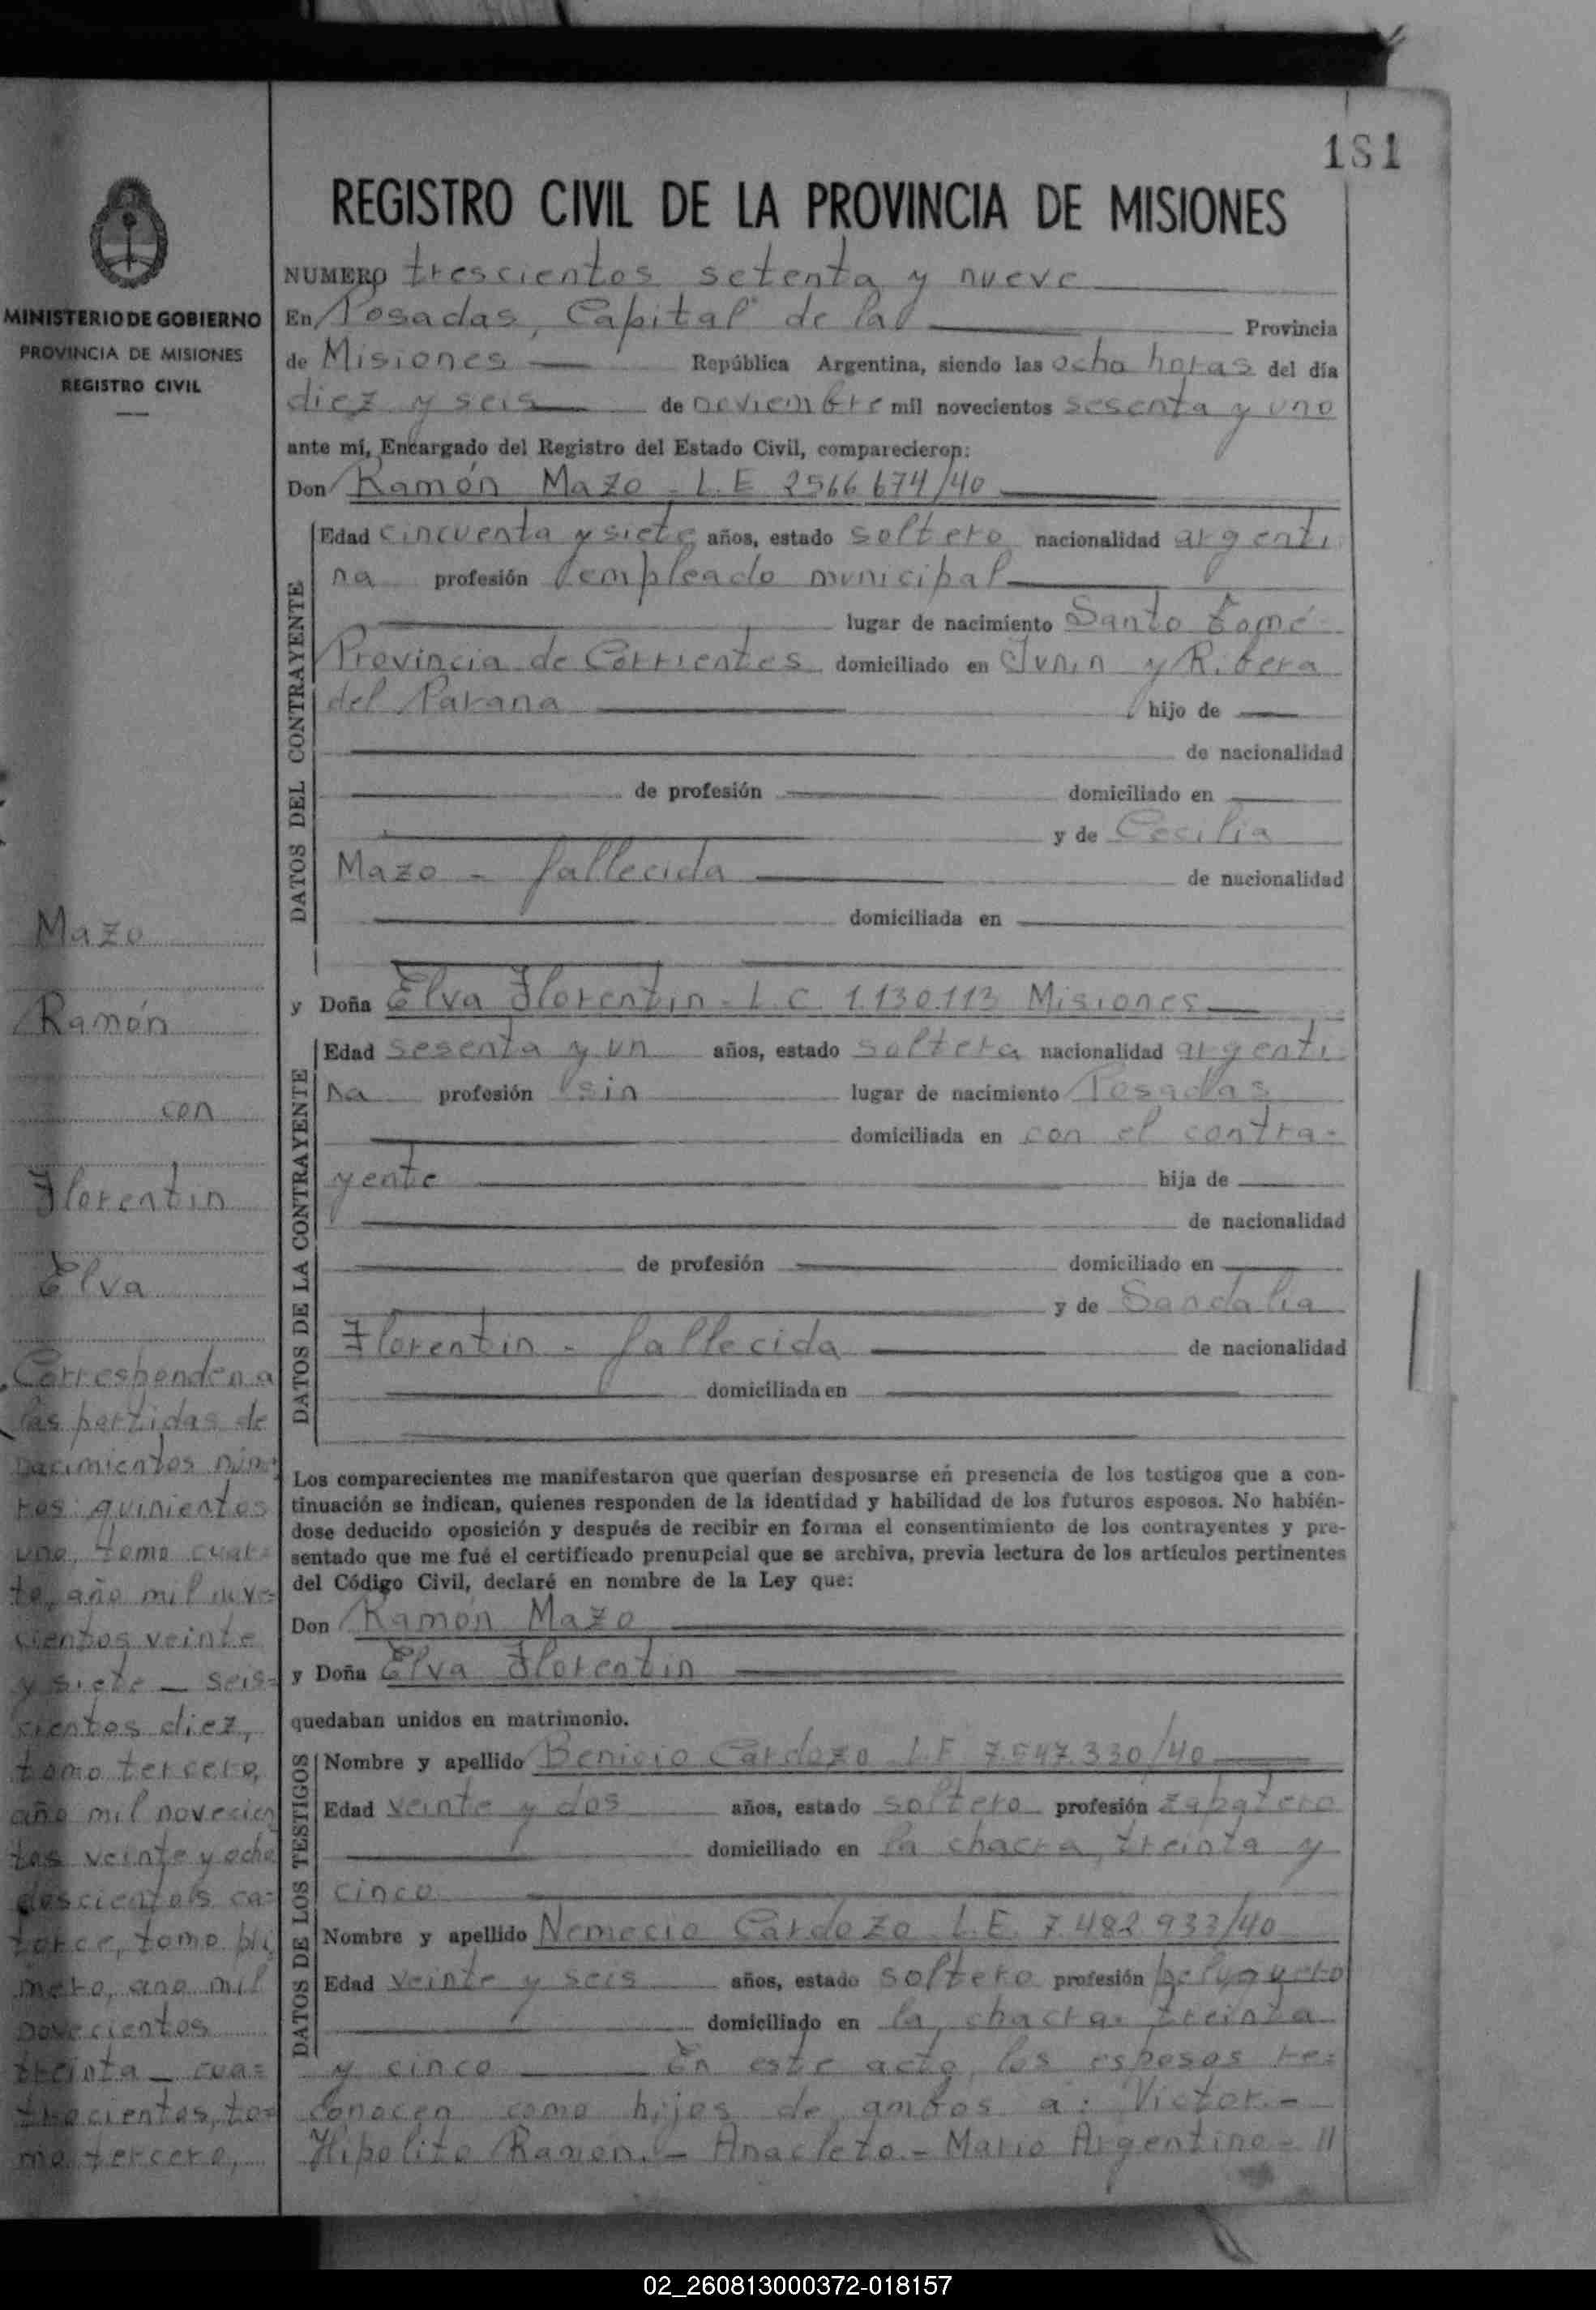 181
REGISTRO CIVIL DE LA PROVINCIA DE MISIONES
MINISTERIO DE GOBIERNO
PROVINCIA DE MISIONES
REGISTRO CIVIL
NUMERO trescientos setenta y nueve
En Posadas, Capital de la Provincia
de Misiones República Argentina, siendo las ocho horas del día
diez y seis de noviembre mil novecientos sesenta y uno
ante mí, Encargado del Registro del Estado Civil, comparecieron:
Don Ramón Mazo - L.E 2566 674/40
DATOS DEL CONTRAYENTE
Edad cincuenta y siete años, estado soltero nacionalidad argenti
na profesión empleado municipal
lugar de nacimiento Santo Tomé
Provincia de Corrientes domiciliado en Junin y Ribera
del Parana hijo de
de nacionalidad
de profesión domiciliado en
y de Cecilia
Mazo - fallecida de nacionalidad
domiciliada en
y Doña Elva Florentin - L.C. 1.130.113 Misiones
DATOS DE LA CONTRAYENTE
Edad sesenta y un años, estado soltera nacionalidad argenti
na profesión sin lugar de nacimiento Posadas
domiciliada en con el contra-
yente hija de
de nacionalidad
de profesión domiciliado en
y de Sandalia
Florentin - fallecida de nacionalidad
domiciliada en
Los comparecientes me manifestaron que querían desposarse en presencia de los testigos que a con-
tinuación se indican, quienes responden de la identidad y habilidad de los futuros esposos. No habién-
dose deducido oposición y después de recibir en forma el consentimiento de los contrayentes y pre-
sentado que me fué el certificado prenupcial que se archiva, previa lectura de los artículos pertinentes
del Código Civil, declaré en nombre de la Ley que:
Don Ramón Mazo
y Doña Elva Florentin
quedaban unidos en matrimonio.
DATOS DE LOS TESTIGOS
Nombre y apellido Benicio Cardozo L.E. 7.547.330/40
Edad veinte y dos años, estado soltero profesión zapatero
domiciliado en la chacra, treinta y
cinco
Nombre y apellido Nemecio Cardozo L.E. 7 482 933/40
Edad veinte y seis años, estado soltero profesión peluquero
domiciliado en la chacra treinta
y cinco En este acto los esposos re=
conocen como hijos de ambos a: Victor.-
Hipolito Ramón.- Anacleto.- Mario Argentino - //
Mazo
Ramón
con
Florentin
Elva
Corresponden a
las partidas de
nacimientos núme
ros quinientos
uno, tomo cuar=
to, año mil nove=
cientos veinte
y siete - seis=
cientos diez,
tomo tercero,
año mil novecien
tos veinte y ocho
doscientos ca=
torce, tomo pri
mero, ano mil
novecientos
treinta - cua=
trocientos, to=
mo tercero,
02_260813000372-018157